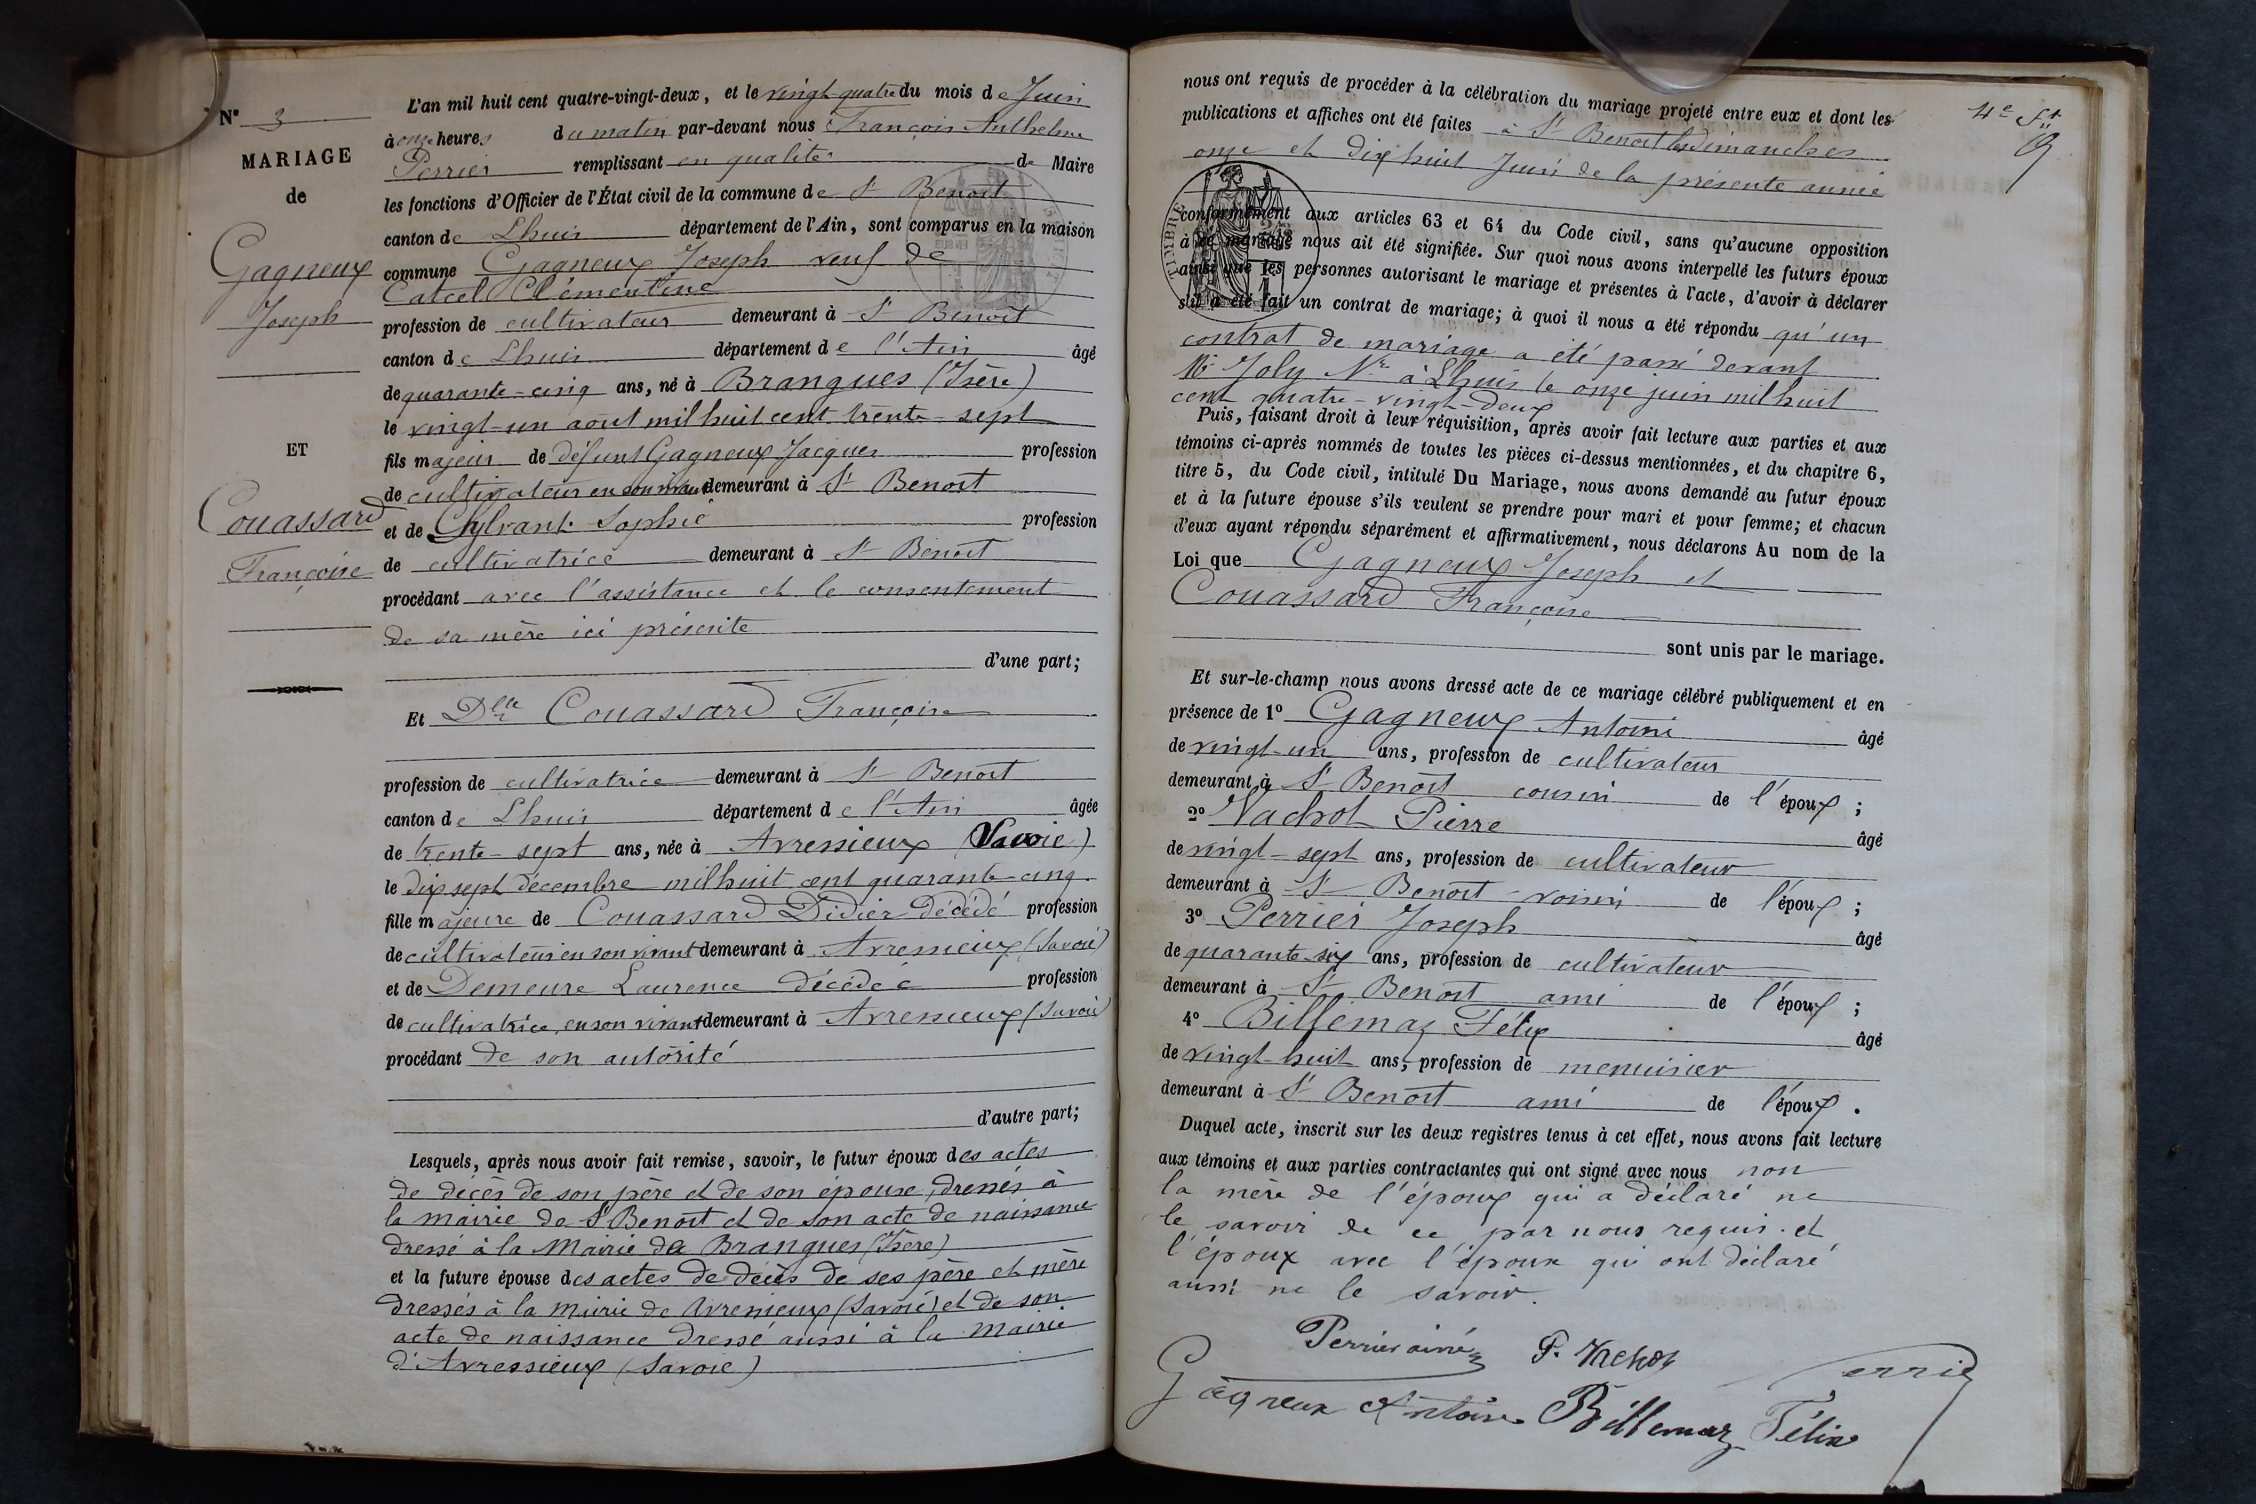 N° 3
MARIAGE
de
Gagneux
Joseph
ET
Couassard
Françoise
L'an mil huit cent quatre-vingt-deux, et le vingt quatre du mois de Juin
à onze heures du matin par-devant nous François Anthelme
Perrier remplissant en qualité de Maire
les fonctions d'Officier de l'État civil de la commune de St Benoit
canton de Lhuis département de l'Ain, sont comparus en la maison
commune Gagneux Joseph veuf de
Catcel Clémentine
profession de cultivateur demeurant à St Benoit
canton de Lhuis département de l'Ain âgé
de quarante-cinq ans, né à Brangues (Isère)
le vingt-un août mil huit cent trente-sept
fils majeur de défunt Gagneux Jacques profession
de cultivateur en son vivant demeurant à St Benoit
et de Sylvant Sophie profession
de cultivatrice demeurant à St Benoit
procédant avec l'assistance et le consentement
de sa mère ici présente
d'une part;
Et Dlle Couassard Françoise
profession de cultivatrice demeurant à St Benoit
canton de Lhuis département de l'Ain âgée
de trente-sept ans, née à Avressieux (Savoie)
le dix sept décembre mil huit cent quarante-cinq
fille majeure de Couassard Didier décédé profession
de cultivateur en son vivant demeurant à Avressieux (Savoie)
et de Demeure Laurence décédée profession
de cultivatrice en son vivant demeurant à Avressieux (Savoie)
procédant de son autorité
d'autre part;
Lesquels, après nous avoir fait remise, savoir, le futur époux des actes
de décès de son père et de son épouse, dressés à
la mairie de St Benoit et de son acte de naissance
dressé à la Mairie de Brangues (Isère)
et la future épouse des actes de décès de ses père et mère
dressés à la mairie de Avressieux (Savoie) et de son
acte de naissance dressé aussi à la Mairie
d'Avressieux (Savoie)
4e ft
nous ont requis de procéder à la célébration du mariage projeté entre eux et dont les
publications et affiches ont été faites à St Benoit les Dimanches
onze et dix huit Juin de la présente année
TIMBRE
conformément aux articles 63 et 64 du Code civil, sans qu'aucune opposition
à ce mariage nous ait été signifiée. Sur quoi nous avons interpellé les futurs époux
ainsi que les personnes autorisant le mariage et présentes à l'acte, d'avoir à déclarer
s'il a été fait un contrat de mariage; à quoi il nous a été répondu qu'un
contrat de mariage a été passé devant
Me Joly Nre à Lhuis le onze juin mil huit
cent quatre-vingt-deux
Puis, faisant droit à leur réquisition, après avoir fait lecture aux parties et aux
témoins ci-après nommés de toutes les pièces ci-dessus mentionnées, et du chapitre 6,
titre 5, du Code civil, intitulé Du Mariage, nous avons demandé au futur époux
et à la future épouse s'ils veulent se prendre pour mari et pour femme; et chacun
d'eux ayant répondu séparément et affirmativement, nous déclarons Au nom de la
Loi que Gagneux Joseph et
Couassard Françoise
sont unis par le mariage.
Et sur-le-champ nous avons dressé acte de ce mariage célébré publiquement et en
présence de 1° Gagneux Antoine âgé
de vingt-un ans, profession de cultivateur
demeurant à St Benoit cousin de l'époux;
2° Vachot Pierre âgé
de vingt-sept ans, profession de cultivateur
demeurant à St Benoit voisin de l'époux;
3° Perrier Joseph âgé
de quarante-six ans, profession de cultivateur
demeurant à St Benoit ami de l'époux;
4° Billemaz Félix âgé
de vingt-huit ans, profession de menuisier
demeurant à St Benoit ami de l'époux.
Duquel acte, inscrit sur les deux registres tenus à cet effet, nous avons fait lecture
aux témoins et aux parties contractantes qui ont signé avec nous non
la mère de l'époux qui a déclaré ne
le savoir de ce par nous requis. et
l'époux avec l'épouse qui ont déclaré
aussi ne le savoir.
Perrier ainé P. Vachot Perrier
Gagneux Antoine Billemaz Félix